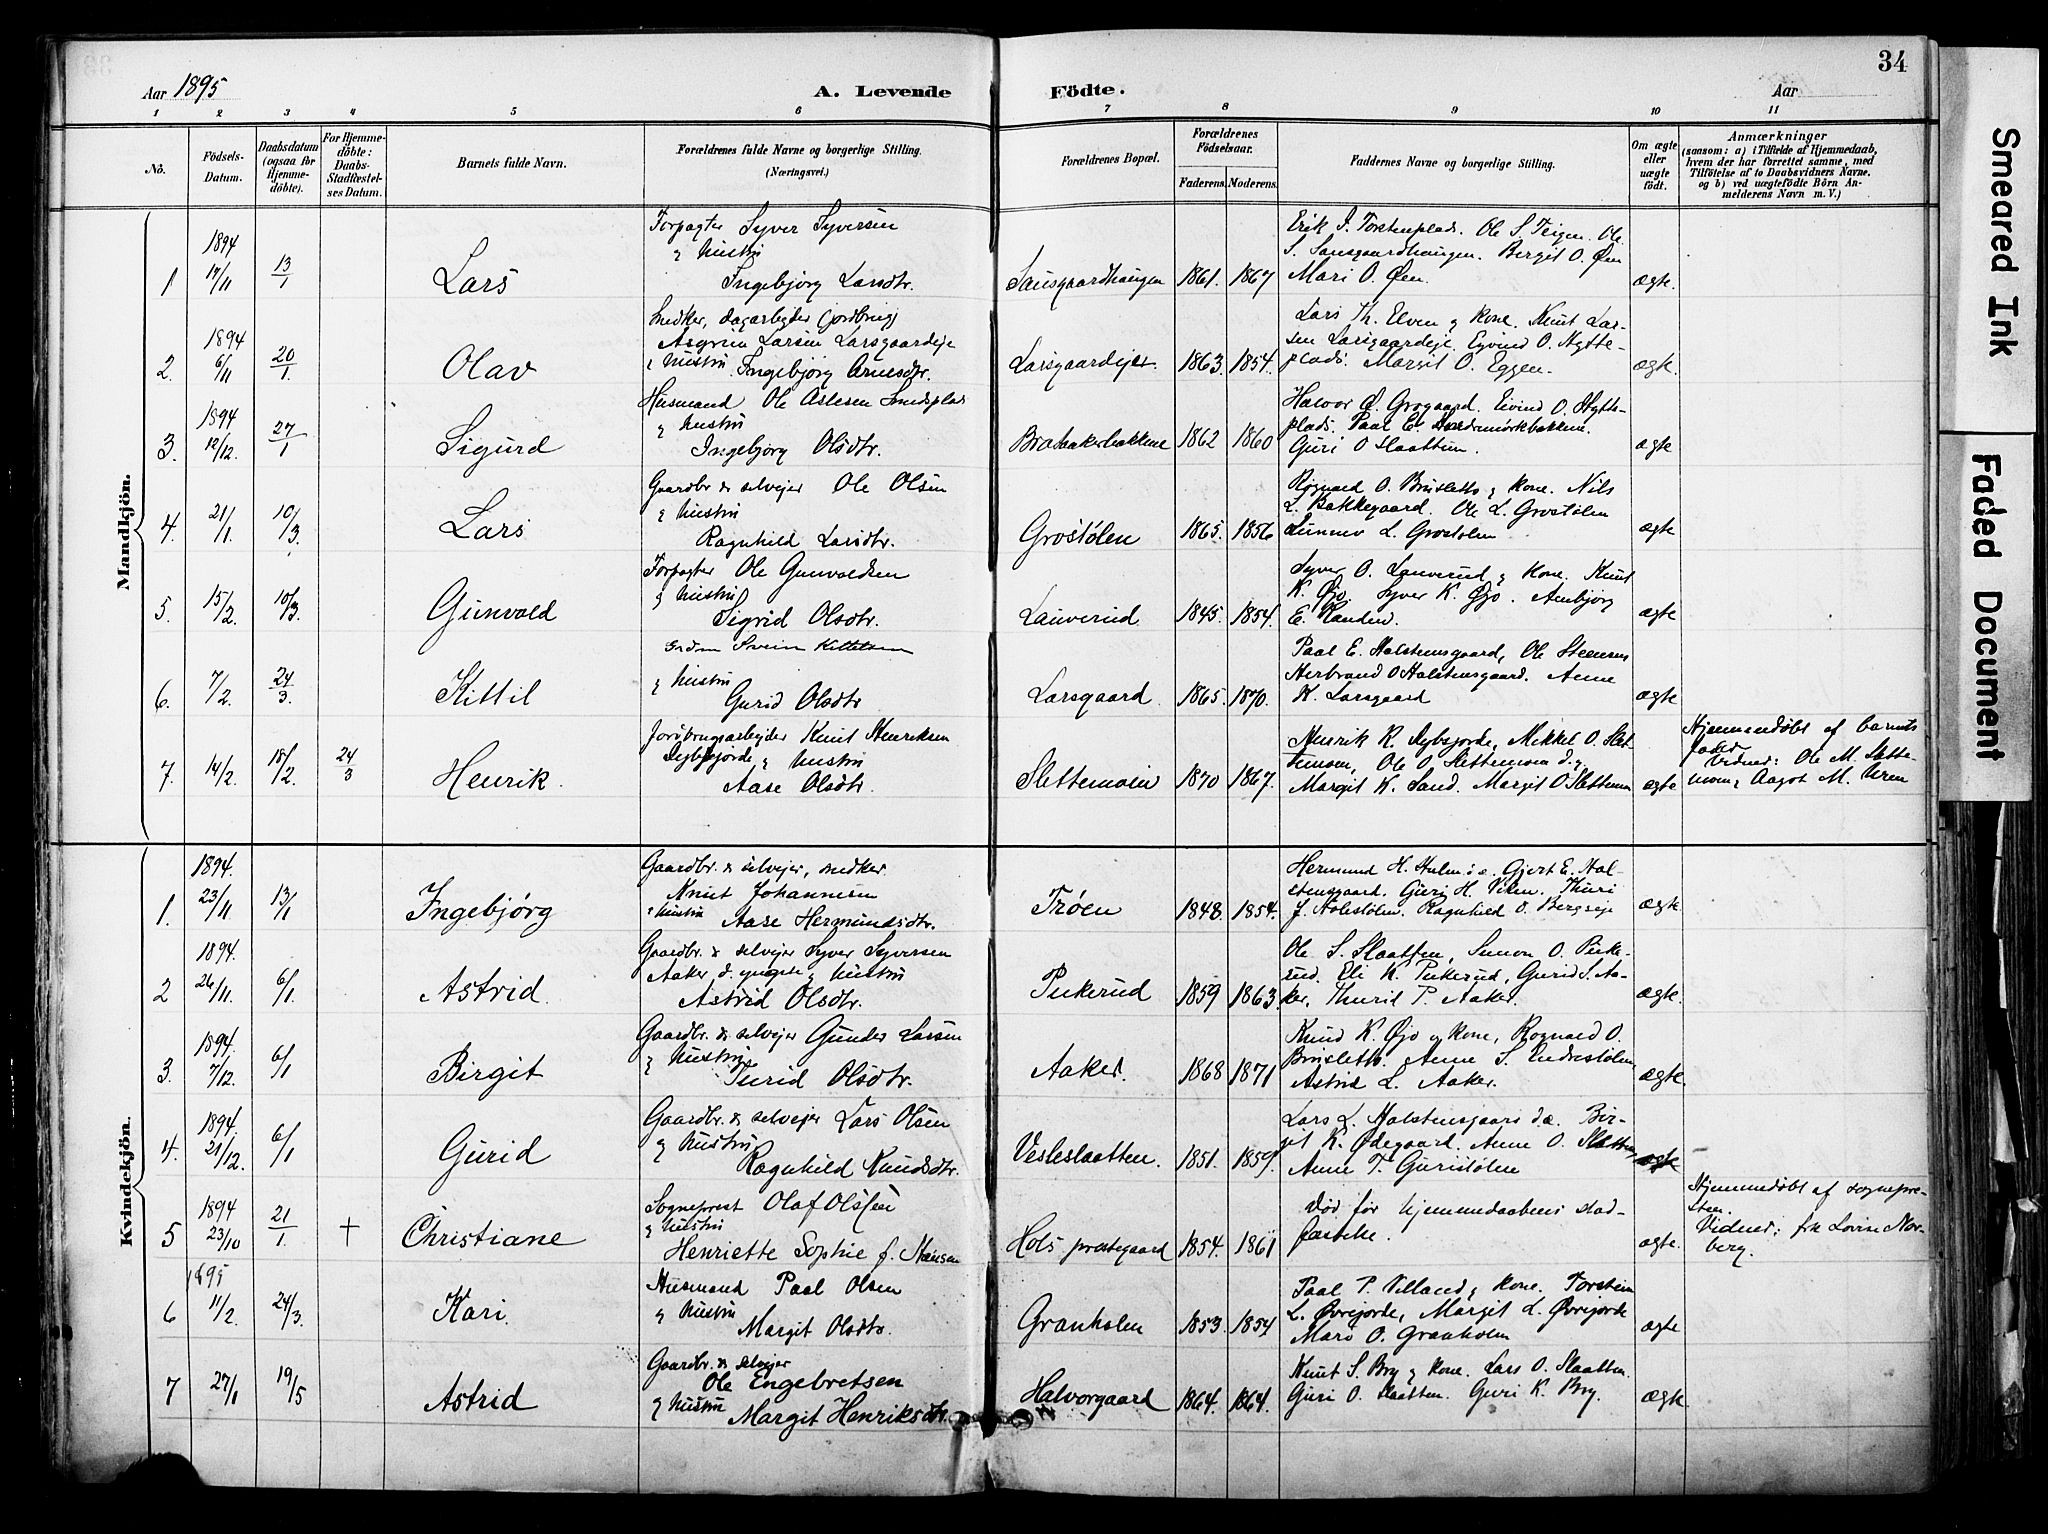 34
Aar 1895
A. Levende
Födte.
Aar
1 2 3 4 5 6 7 8 9 10 11
No.
Födsels-Datum.
Daabsdatum (ogsaa for Hjemmedöbte).
For Hjemmedöbte: Daabs-Stadfæstelses Datum.
Barnets fulde Navn.
Forældrenes fulde Navne og borgerlige Stilling.
(Næringsvei.)
Forældrenes Bopæl.
Forældrenes Födselsaar.
Faderens. Moderens.
Faddernes Navne og borgerlige Stilling.
Om ægte eller uægte födt.
Anmærkninger
(saasom: a) i Tilfælde af Hjemmedaab,
hvem der har forrettet samme, med
Tilföielse af to Daabsvidners Navne,
og b) ved uægtefödte Börn Anmelderens Navn m. V.)
Mandkjön.
1 1894 17/11 13/1 Lars
Forpagter Syver Syversen
& Hustru
Ingebjørg Larsdtr.
Sausgaardhaugen 1861. 1867
Erik S. Torstenplads. Ole S. Teigen. Ole
S. Sausgaardhaugen. Bergit O. Øen
Mari O. Øen.
ægte.
2. 1894 6/11 20/1. Olav
Snedker, dagarbejder (jordbrug)
Asgrim Larsen Larsgaardeje
& Hustru Ingebjørg Arnesdtr.
Larsgaardejer. 1863. 1854.
Lars Th. Elven & Kone. Knut Lar-
sen Larsgaardeje. Eyvind O. Hytte-
plads. Margit O. Eggen.
ægte.
3. 1894 12/12. 27/1 Sigurd
Husmand Ole Aslesen
& Hustru
Ingebjørg Olsdtr.
1862 1860
Halvor Grogaard. Eivind O. Hytte-
plads. Paal E.
Guri O Slaatten.
ægte
4. 21/1. 10/3. Lars
Gaardbr. & selvejer Ole Olsen
& Hustru
Ragnhild Larsdtr.
Grostølen 1865. 1856
Rognald O. Brusletto & Kone. Nils
L. Bakkegaard. Ole L. Grostølen
Gunnev L. Grostølen
ægte
5. 15/2. 10/3. Gunvald
Forpagter Ole Gunvaldsen
& Hustru
Sigrid Olsdtr.
Lauverud. 1845. 1854.
Syver O. Lauverud & Kone. Knut
K. Øjo. Syver K. Øjo. Anbjørg
E. Randen.
ægte
6. 7/2. 24/3. Kittil
Grdm Svein Kittelsen
& Hustru
Gurid Olsdtr
Larsgaard. 1865. 1870.
Paal E. Halstensgaard, Ole
Herbrand O Halstensgaard. Anne
K. Larsgaard
ægte
7. 14/2. 18/2. 24/3 Henrik.
Jordbrugsarbejder Knut Henriksen
Dybsjorde, & Hustru
Aase Olsdtr.
Slettemoen 1870 1867.
Henrik K. Dybsjorde, Mikkel O. Slet-
temoen, Ole O. Slettemoen d.y.
Margit K. Sand. Margit O Slettemoen
ægte
Hjemmedøbt af barnets
fader
Vidner: Ole M. Slette-
moen, Aagot M. Uren
Kvindekjön.
1. 1894. 23/11. 13/1 Ingebjørg
Gaardbr. & selvejer, snedker
Knut Johannesen
& Hustru Aase Hermundsdtr.
Trøen 1848. 1854.
Hermund H. Gjert E. Hal-
stensgaard. Guri H. Thuri
J. Holestølen. Ragnhild O. Bergseje
ægte.
2 1894. 26/11. 6/1. Astrid.
Gaardbr. & selvejer Syver Syversen
Aaker d. yngste & Hustru
Astrid Olsdtr.
Pukerud 1859 1863.
Ole S. Slaatten, Simon O. Puke-
rud. Eli K. Pukerud, Gurid S. Aa-
ker, Thurid P. Aaker.
ægte.
3. 1894. 7/12. 6/1 Birgit
Gaardbr. & selvejer Gunder Larsen
& Hustru
Turid Olsdtr.
Aaker. 1868 1871
Knud K. Øjo & Kone, Rognald O.
Brusletto. Anne S. Endrestølen
Astrid L. Aaker.
ægte.
4. 1894. 21/12. 6/1 Gurid
Gaardbr. & selvejer Lars Olsen
& Hustru
Ragnhild Knudsdtr.
Vesleslaatten. 1851. 1859.
Lars L. Halstensgaard d.æ. Bir-
git K. Ødegaard. Anne O. Slaatten
Anne T. Guristølen
ægte
5 1894 23/10 21/1. + Christiane
Sogneprest Olaf Olsen
& Hustru
Henriette Sophie f. Hansen
Hols prestegaard 1854. 1861
Død før hjemmedaabens stad-
fæstelse.
ægte.
Hjemmedøbt af sognepre-
sten.
Vidner: frk Lovise Nor-
berg.
6 1895 11/2. 24/3. Kari.
Husmand Paal Olsen
& Hustru
Margit Olsdtr.
Granholen 1853. 1854
Paal P. Villand & Kone, Torstein
L. Øvrejorde, Margit L. Øvrejorde
Mari O. Granholen
ægte
7 27/1 19/5 Astrid
Gaardbr. & selvejer
Ole Engebretsen
& Hustru Margit Henriksdtr.
Halvorgaard 1864. 1864.
Knut S. Bry & Kone. Lars O. Slaatten
Guri O. Slaatten. Guri K. Bry.
ægte.
Smeared Ink
Faded Document